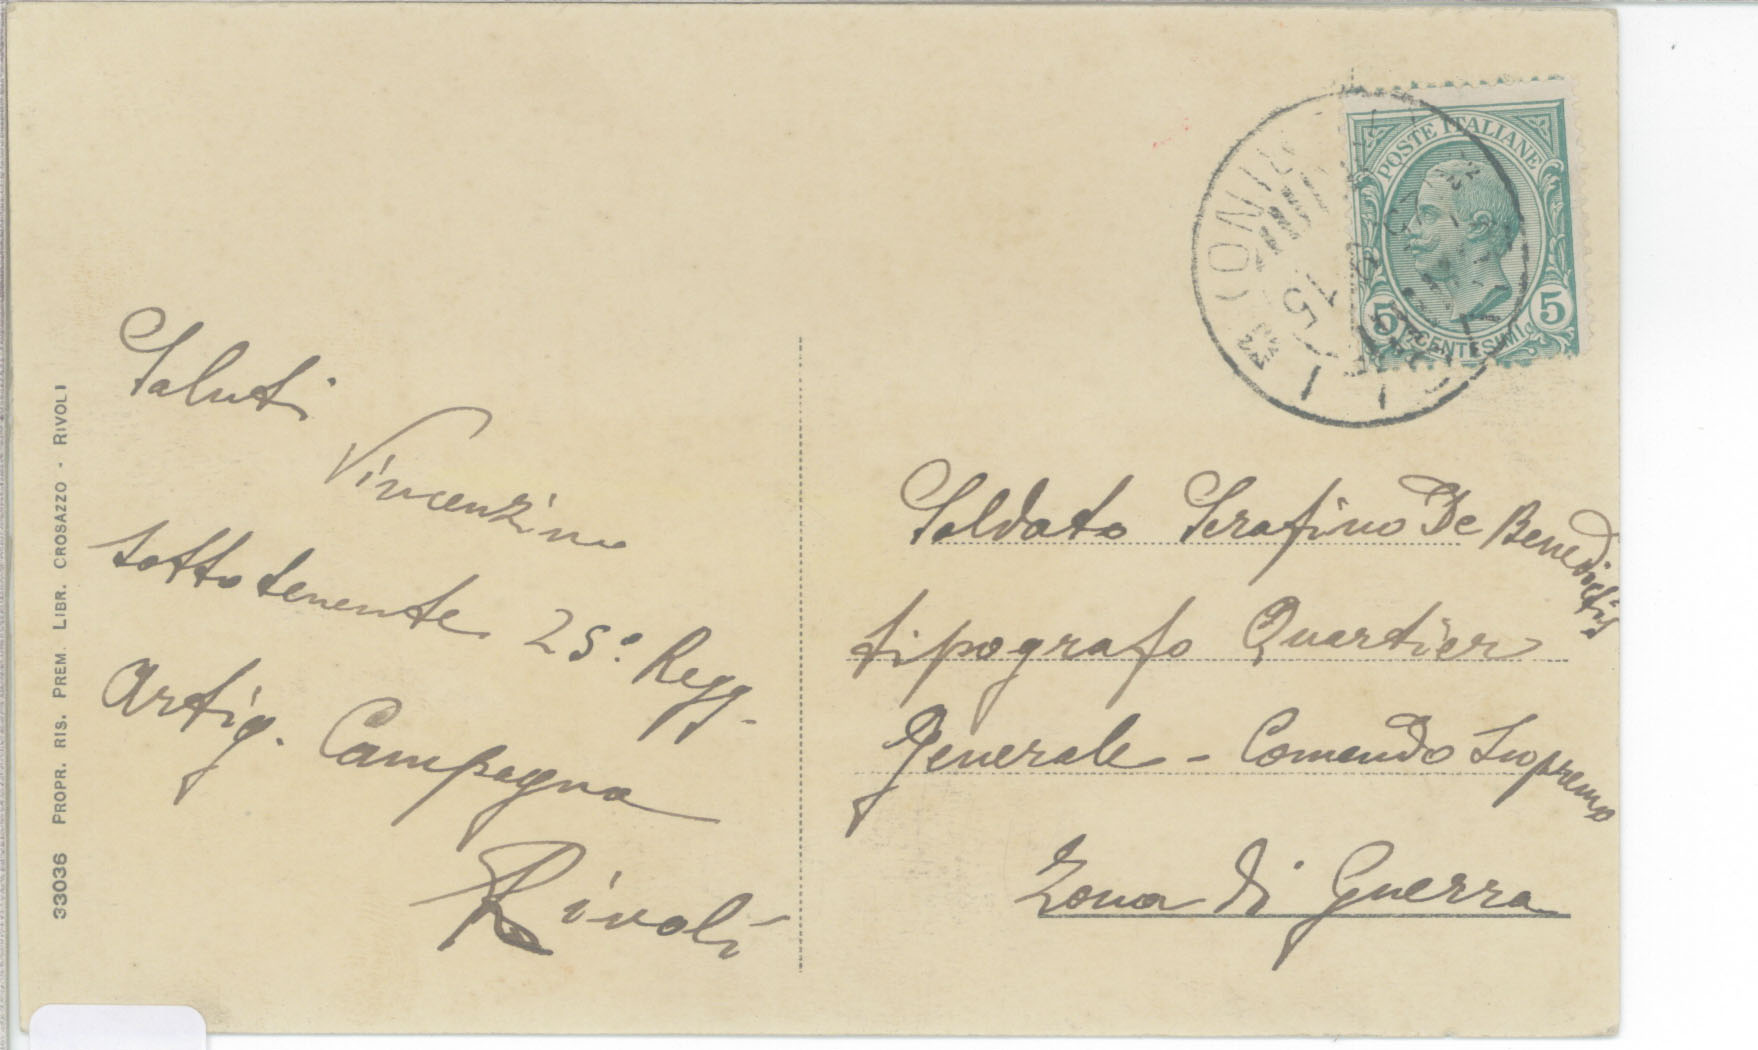 33036 PROPR. RIS. PREM. LIBR. CROSAZZO - RIVOLI
Saluti
Vincenzino
sottotenente 25º Regg.
Artig. Campagna
Rivoli
POSTE ITALIANE
5 CENTESIMI 5
(TORINO)
15
Soldato Serafino De Benedictis
tipografo Quartier
Generale - Comando Supremo
Zona di Guerra